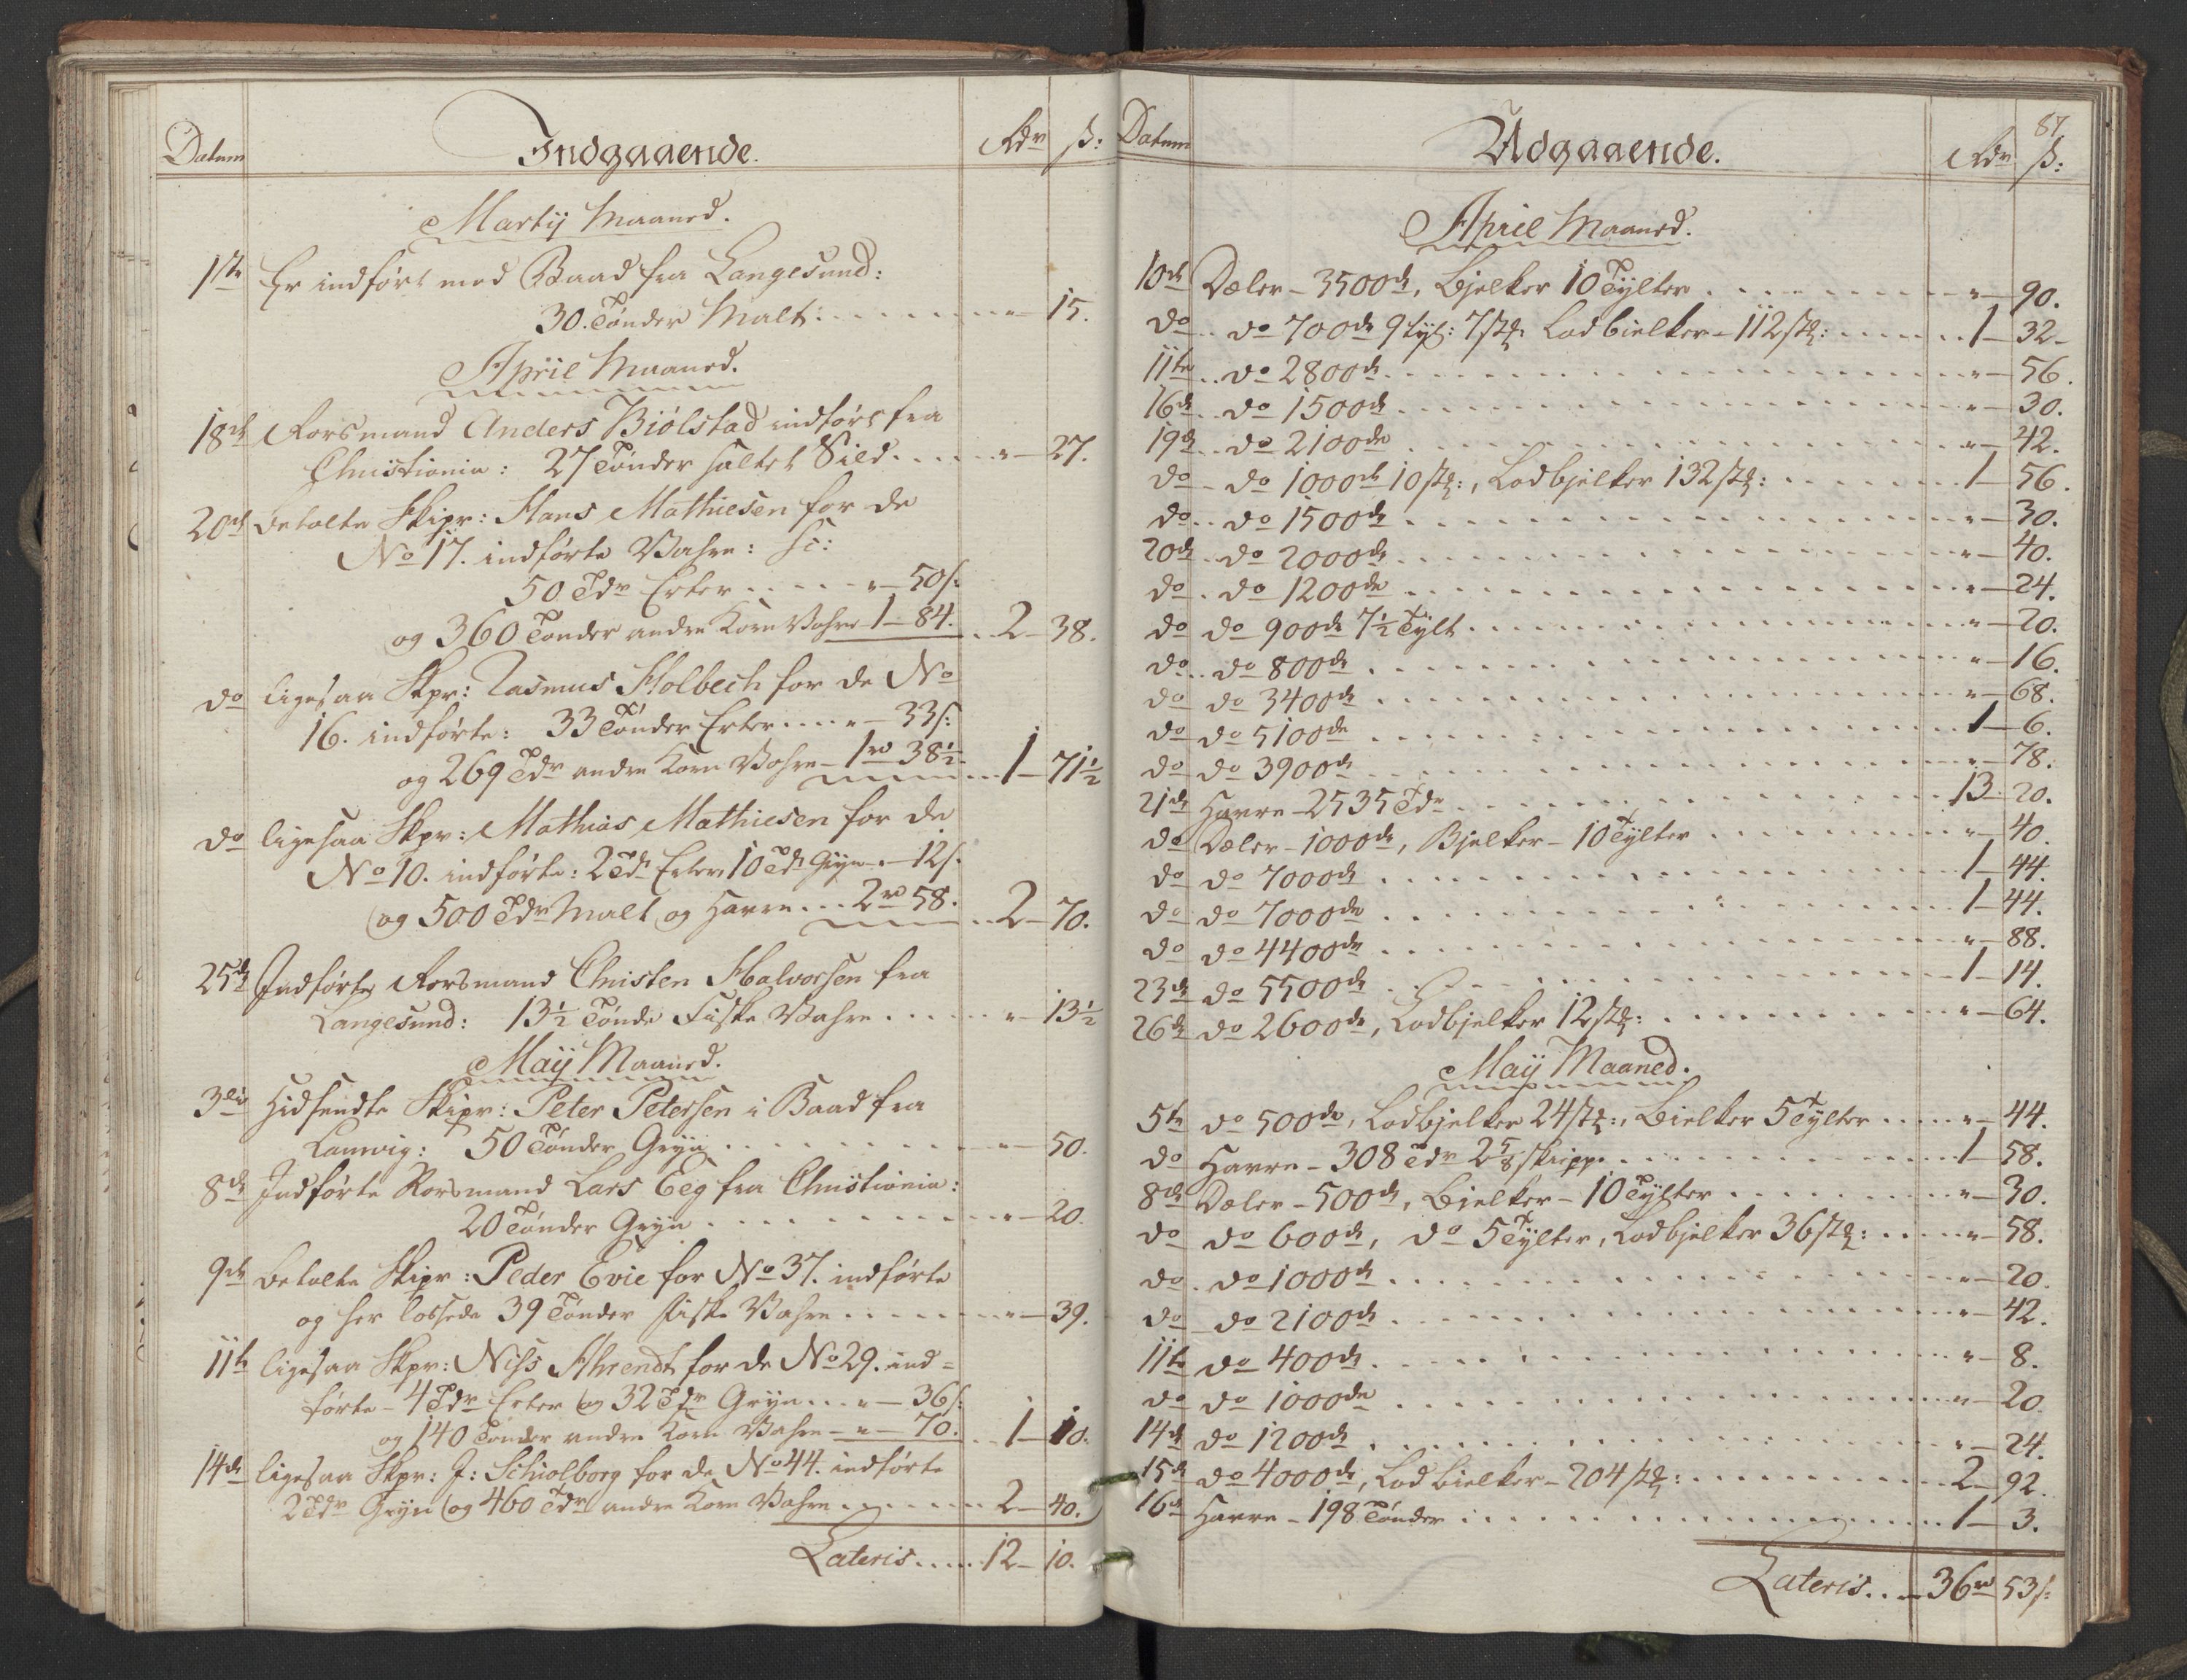 Datum Indgaaende. Rdr ß:
Martij Maaned.
1ste Er indført med Baad fra Langesund:
30. Tønder Malt: " 15.
April Maaned.
18de Rorsmand Anders Biølstad indført fra
Christiania: 27 Tønder saltet Sild " 27.
20de betalte Skipr: Hans Mathiesen for de
No 17. indførte Vahre: sc:
50 Tdr Erter " 50 s:
og 360 Tønder andre Korn Vahre 1 84. 2 38.
do ligesaa Skpr: Rasmus Holbech for de No
16. indførte: 33 Tønder Erter " 33 s:
og 269 Tdr andre Korn Vahre 1rd 38½ 1 71½
do ligesaa Skpr: Mathias Mathiesen for de
No 10. indførte: 2 Tdr Erter 10 Tdr Gryn " 12 s.
og 500 Tdr Malt og Havre 2rd 58. 2 70.
25de Indførte Rorsmand Christen Halvorsen fra
Langesund: 13½ Tønde Fiske Vahre " 13½
Maij Maaned.
3die Hidsendte Skipr: Peter Petersen i Baad fra
Laurvig: 50 Tønder Gryn " 50.
8de Indførte Rorsmand Lars Eeg fra Christiania:
20 Tønder Gryn " 20.
9de betalte Skipr: Peder Evie for No 37. indførte
og her lossede 39 Tønder fiske Vahre " 39.
11te ligesaa Skpr: Niss Ahrendt for de No 29. ind=
førte 4 Tdr Erter og 32 Tdr Gryn " 36 s:
og 140 Tønder andre Korn Vahre " 70. 1 10.
14de ligesaa Skpr: J: Schiolborg for de No 44. indførte
2 Tdr Gryn og 460 Tdr andre Korn Vahre 2 40.
Lateris 12 10.
87
Datum Udgaaende. Rdr ß:
April Maaned.
10de Dæler 3500de, Bjelker 10 Tylter " 90.
do do 700de 9 tyl: 7 stk: Lodbielker 112 stk: 1 32
11te do 2800de " 56.
16de do 1500de " 30.
19de do 2100de " 42.
do do 1000de 10 stk:, Lodbjelker 132 stk: 1 56.
do do 1500de " 30.
20de do 2000de " 40.
do do 1200de " 24.
do do 900de 7½ Tylt " 20.
do do 800de " 16.
do do 3400de " 68.
do do 5100de 1 6.
do do 3900de " 78.
21de Havre 2535 Tdr 13 20.
do Dæler 1000de, Bjelker 10 Tylter " 40.
do do 7000de 1 44.
do do 7000de 1 44.
do do 4400de " 88.
23de do 5500de 1 14.
26de do 2600de, Lodbjelker 12 stk: " 64.
Maij Maaned.
5te do 500de, Lodbjelker 24 stk:, Bielker 5 Tylter " 44.
do Havre 308 Tdr 2⅝ skiepp. 1 58.
8de Dæler 500de, Bielker 10 Tylter " 30.
do do 600de, do 5 Tylter, Lodbjelker 36 stk: " 58.
do do 1000de " 20.
do do 2100de " 42.
11te do 400de " 8.
do do 1000de " 20
14de do 1200de " 24.
15de do 4000de, Lodbielker 204 stk: 2 92.
16de Havre 198 Tønder 1 3.
Lateris 36rd 53 s: